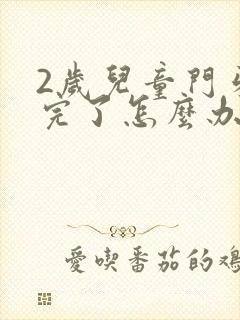 2歲兒童門
完了怎麼办
愛喫番茄的鳮